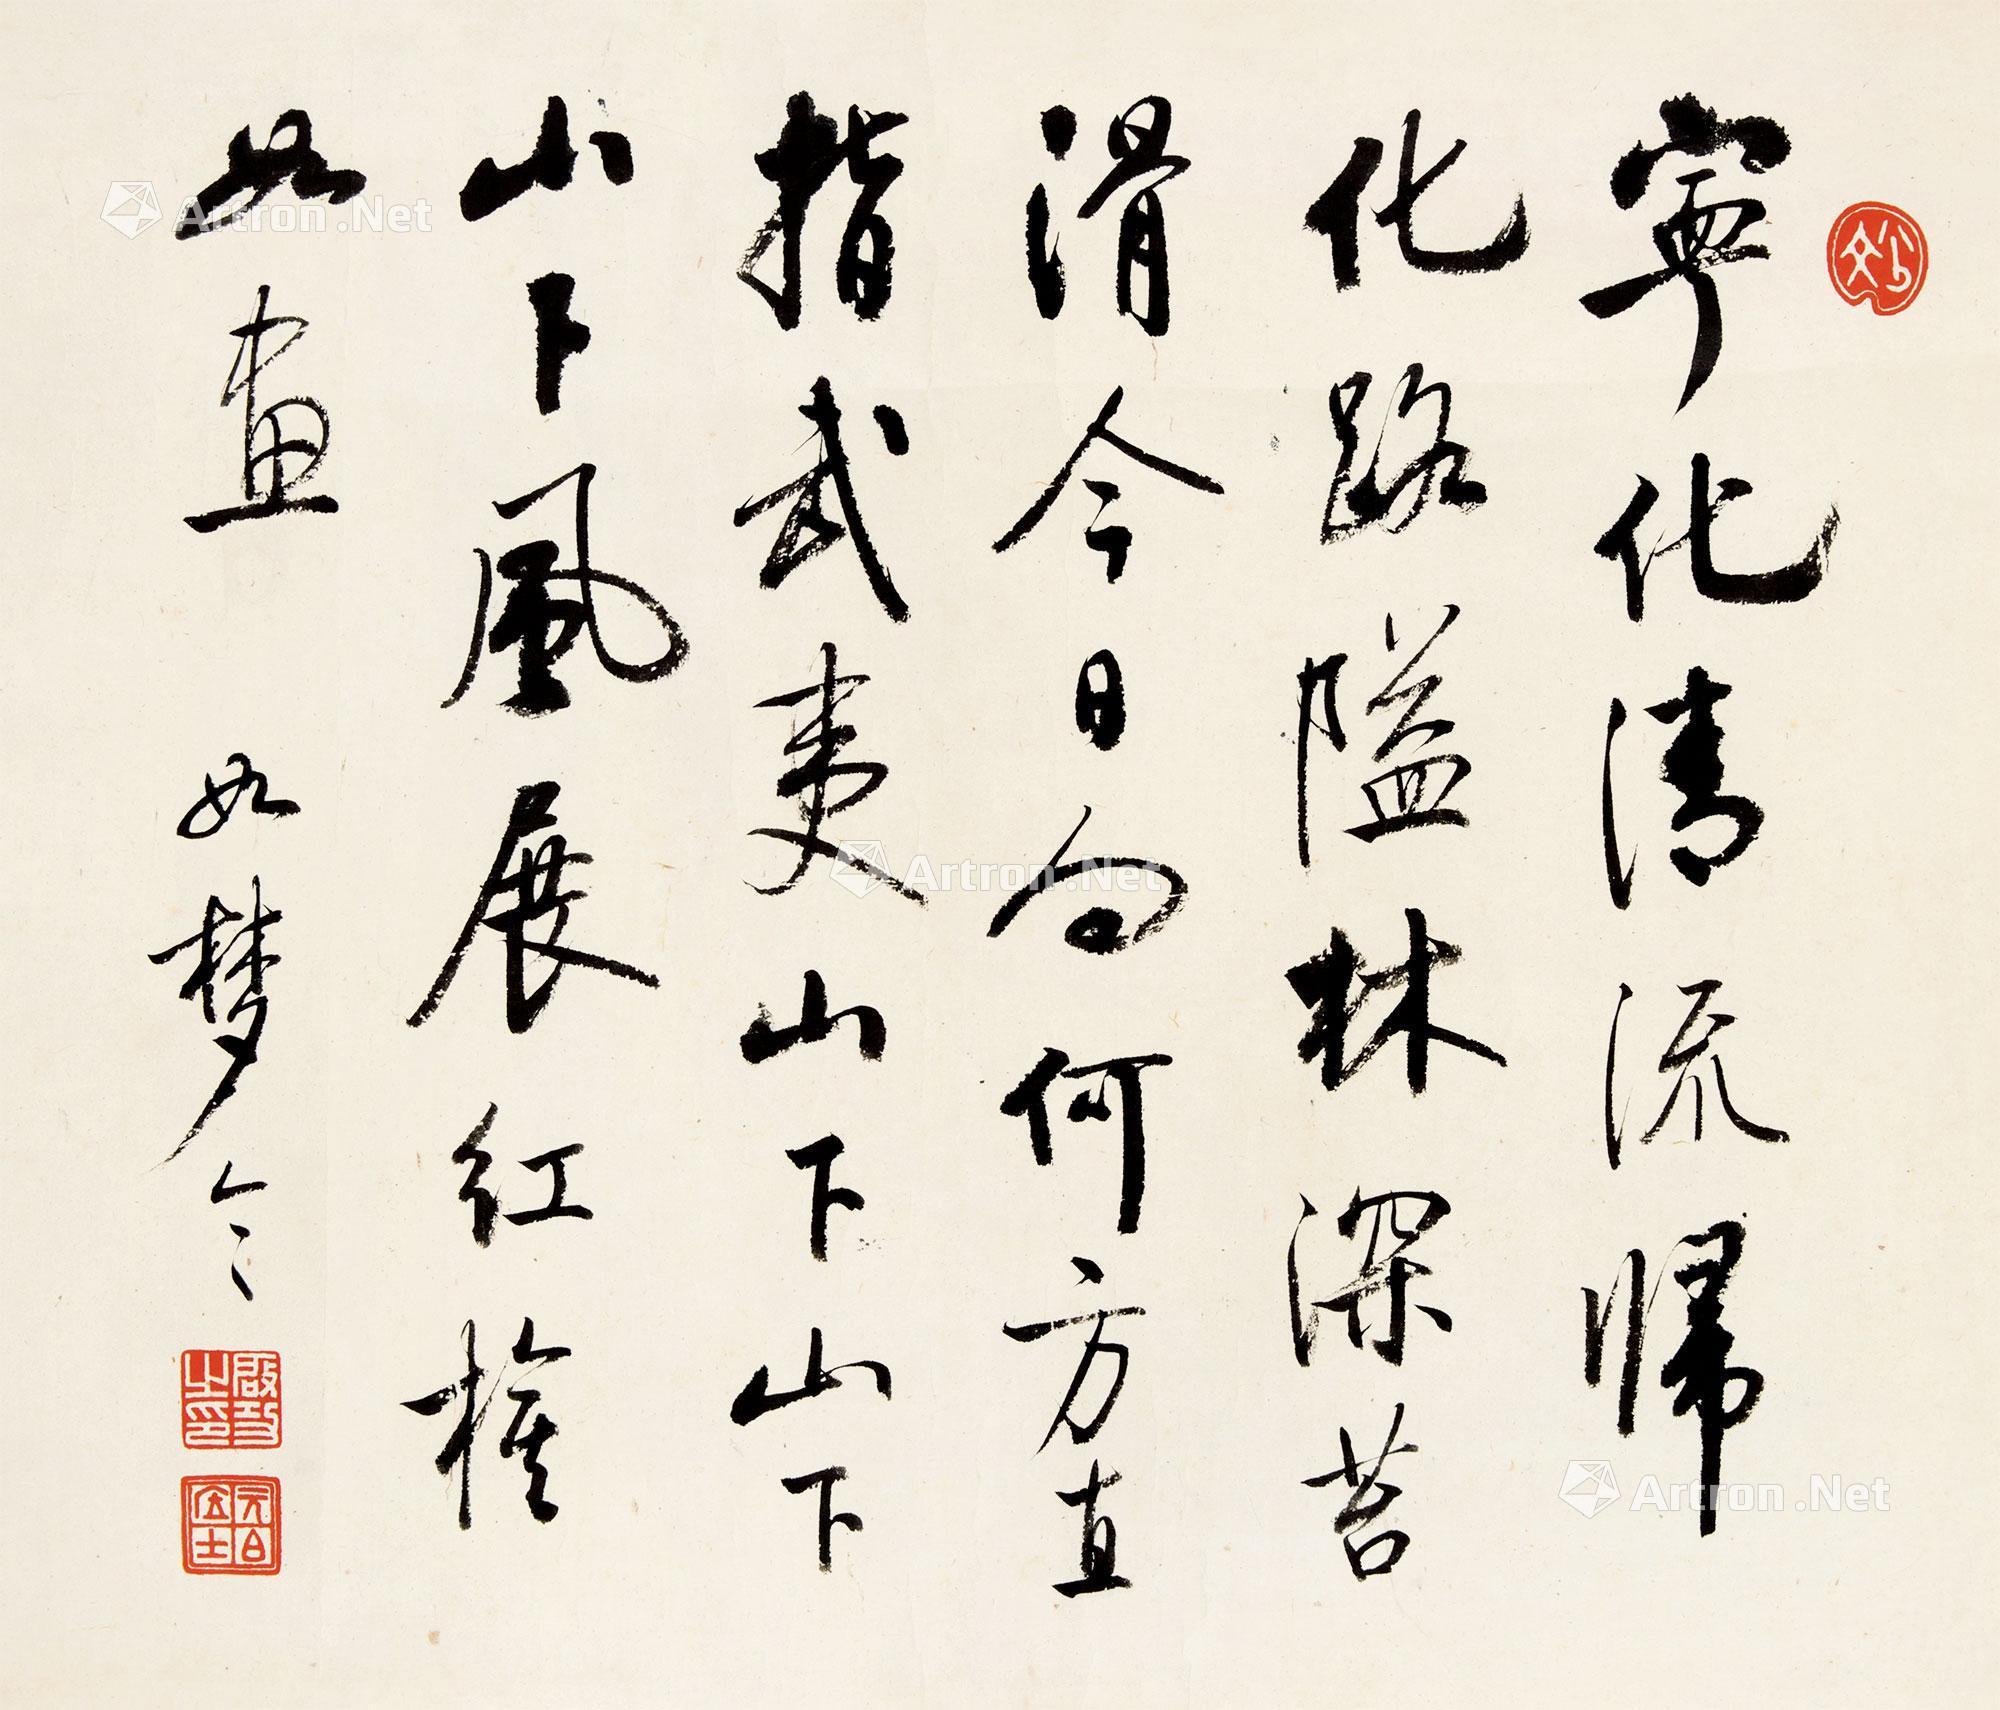 寧化清流帰
化路隘林深苔
滑今日向何方直
指武夷山下山下
山下風展红旗
如畫 如梦令
啟功之印
Artron.Net
Artron.Net
Artron.Net